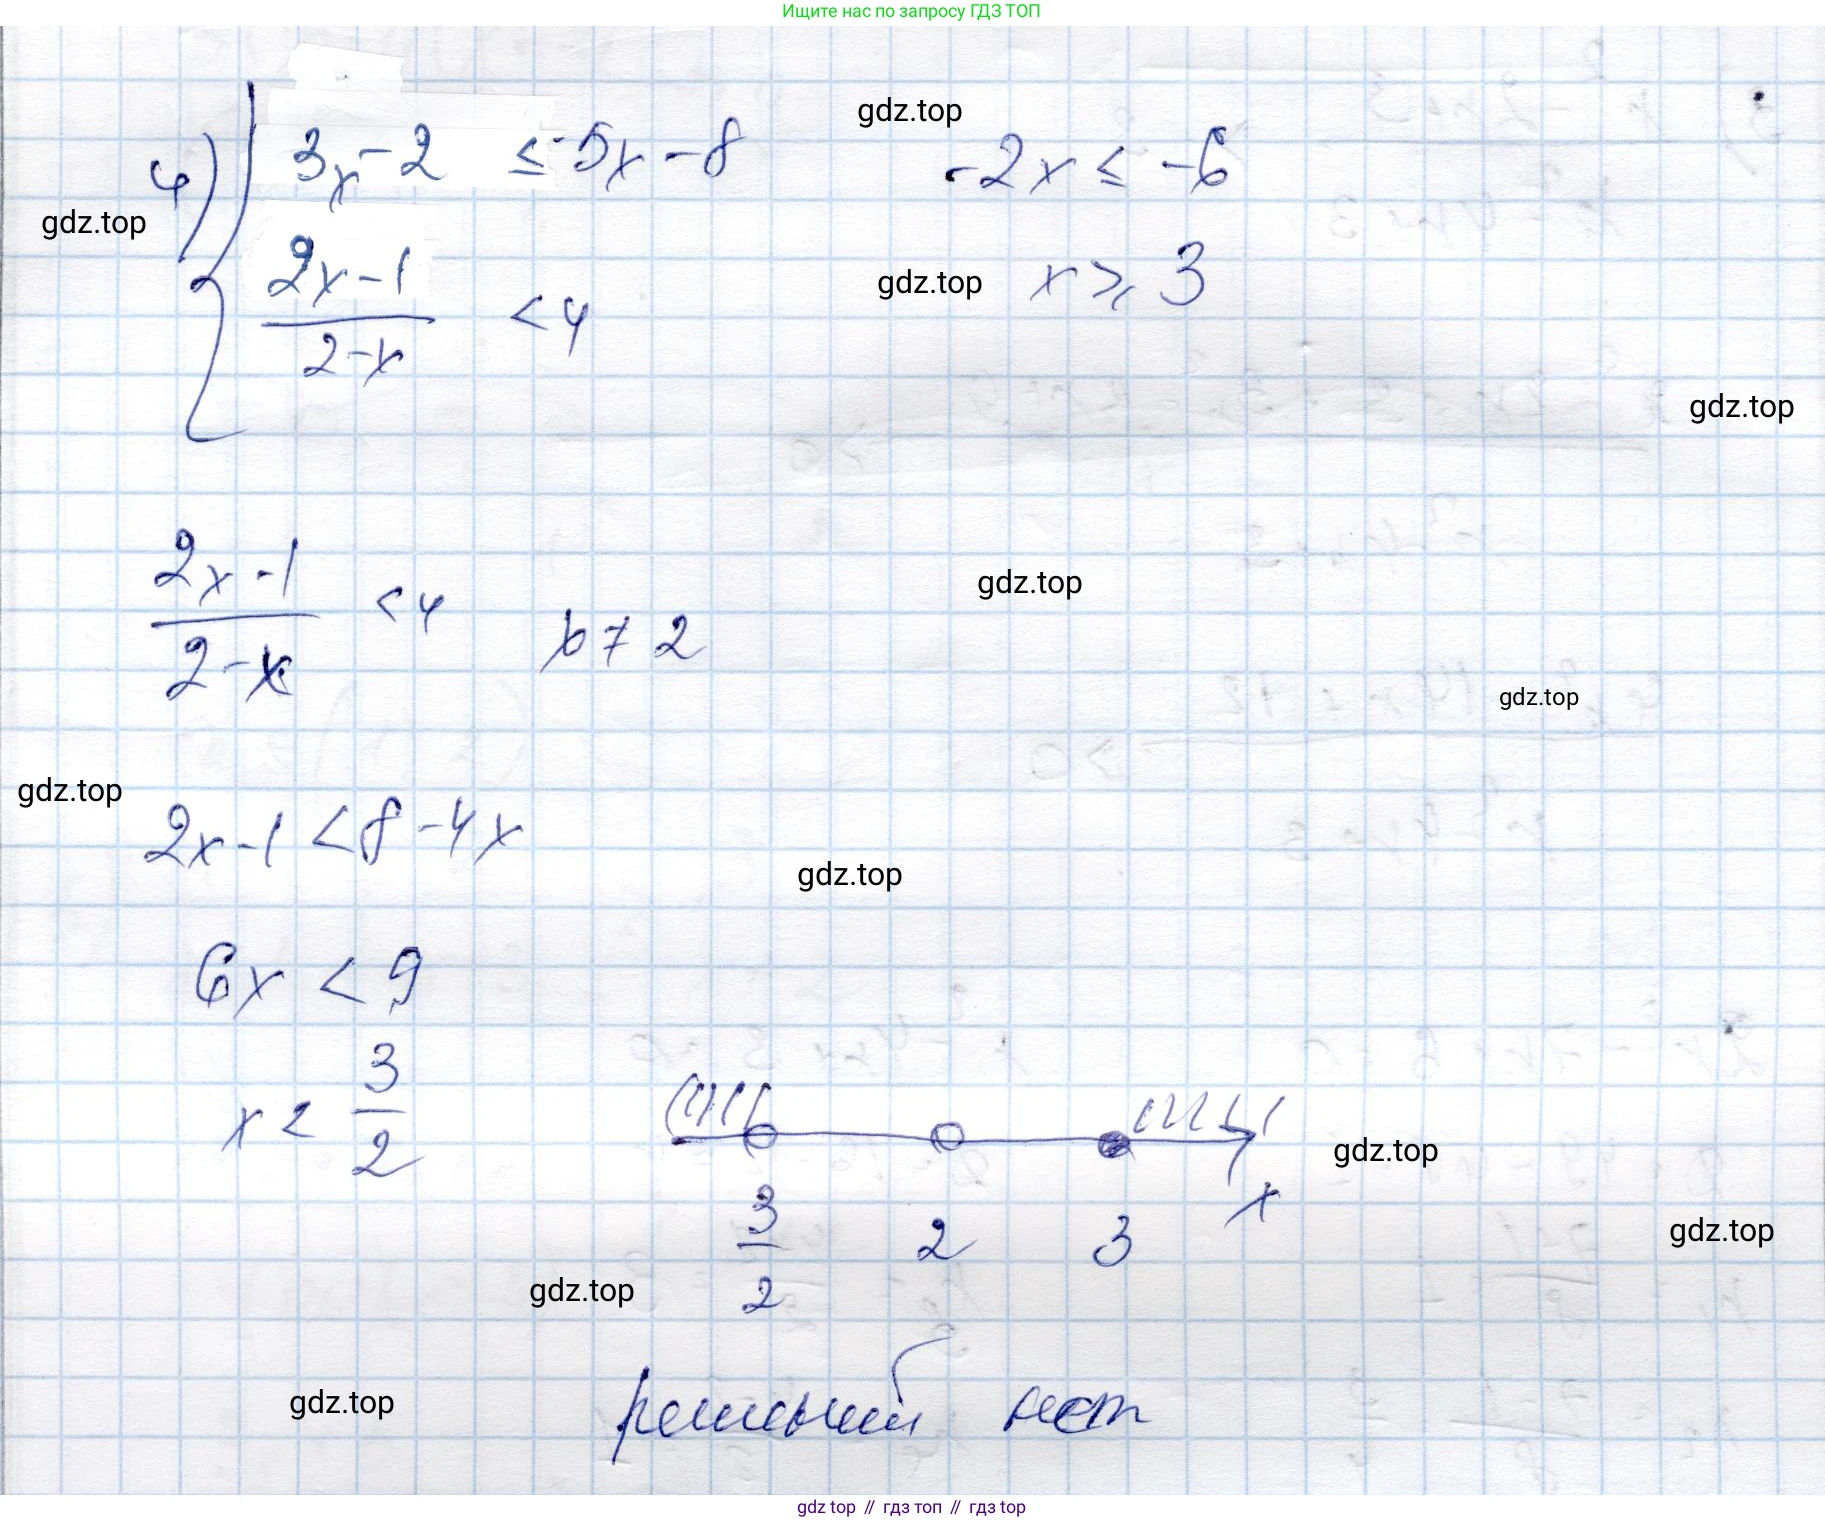 Ищите нас по запросу ГДЗ ТОП
gdz.top
4) { 3x-2 ≤ -5x-8    -2x ≤ -6
gdz.top
2x-1 / 2-x < 4    gdz.top    x ≥ 3
gdz.top
2x-1 / 2-x < 4    x ≠ 2
gdz.top
gdz.top
gdz.top
2x-1 < 8-4x
gdz.top
6x < 9
x < 3/2
gdz.top
x
3/2    2    3
gdz.top
gdz.top
gdz.top
решений нет
gdz top // гдз топ // гдз top